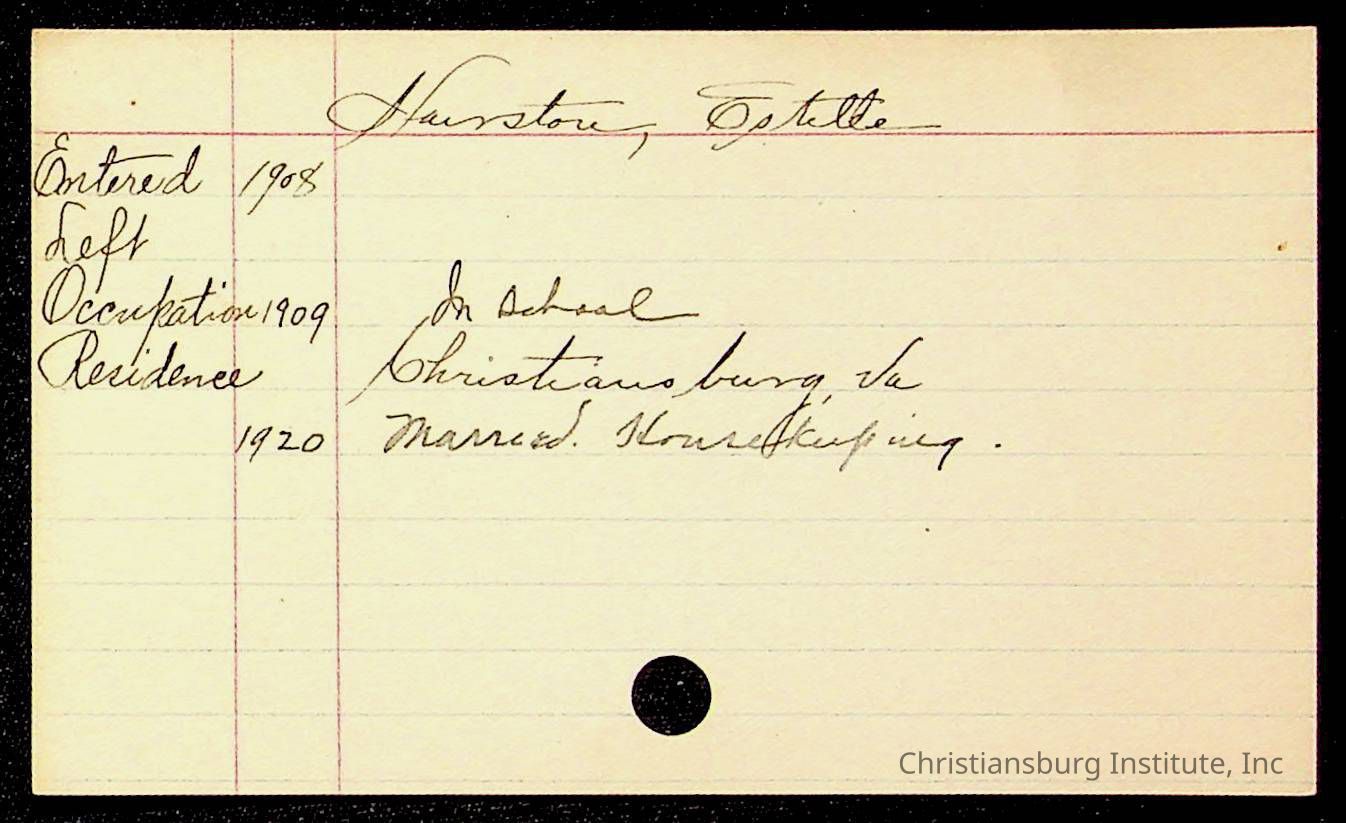 Hairston, Estelle
Entered 1908
Left
Occupation 1909 In school
Residence Christiansburg, Va
1920 Married. Housekeeping.
Christiansburg Institute, Inc